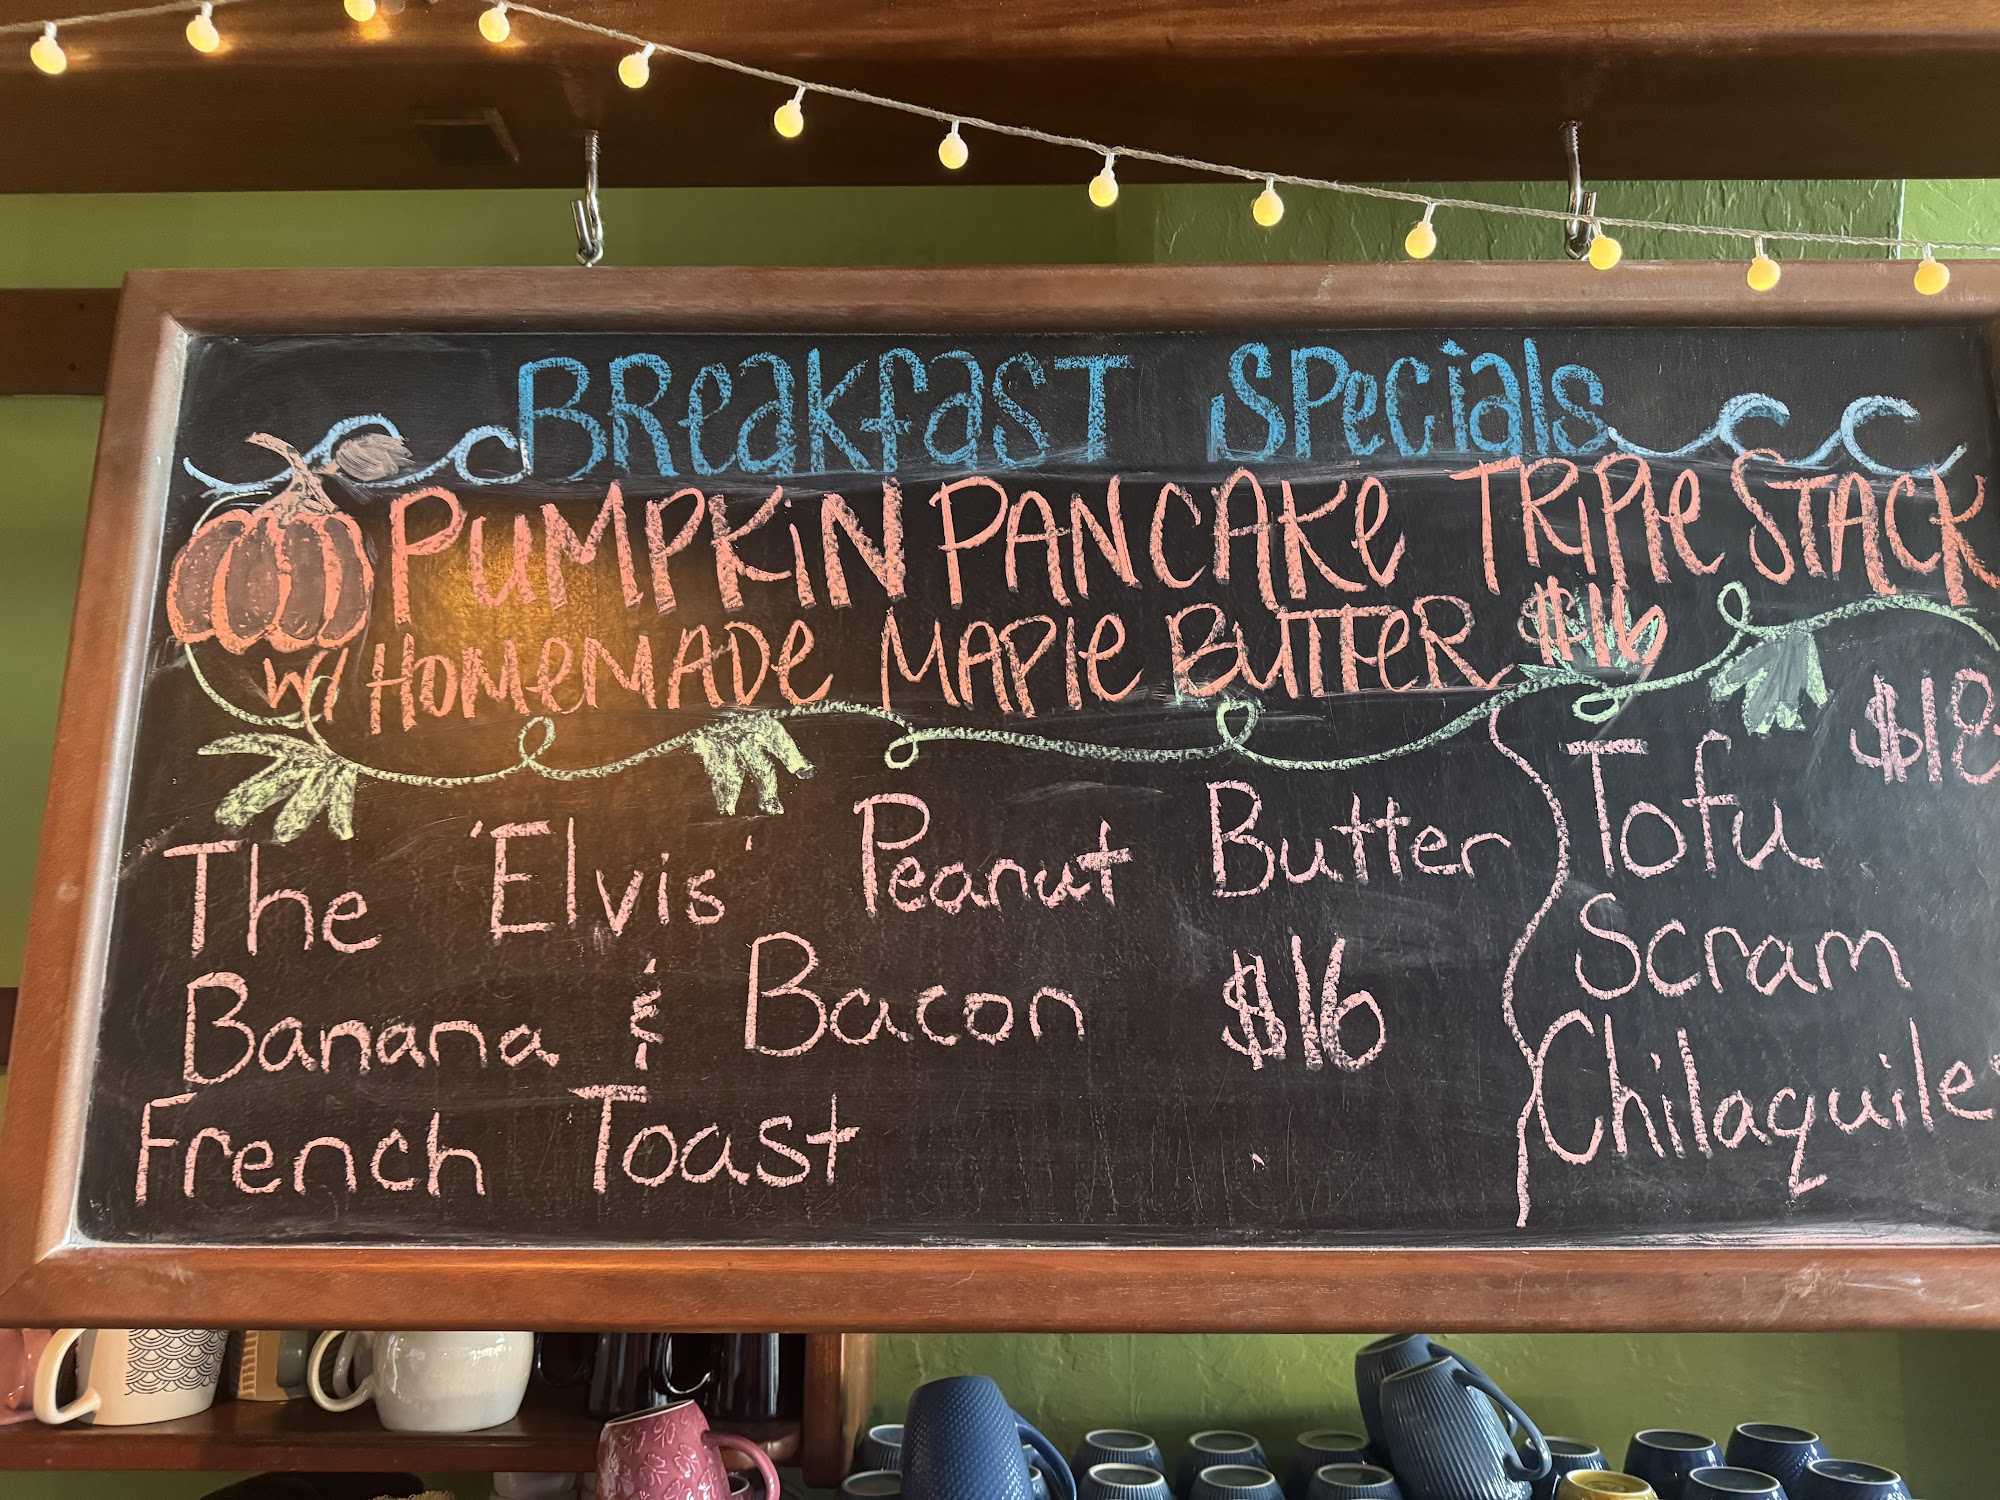 Breakfast Specials
Pumpkin Pancake Triple Stack
w/ Homemade Maple Butter $16
The 'Elvis' Peanut Butter
Banana & Bacon $16
French Toast
$18
Tofu
Scram
Chilaquiles